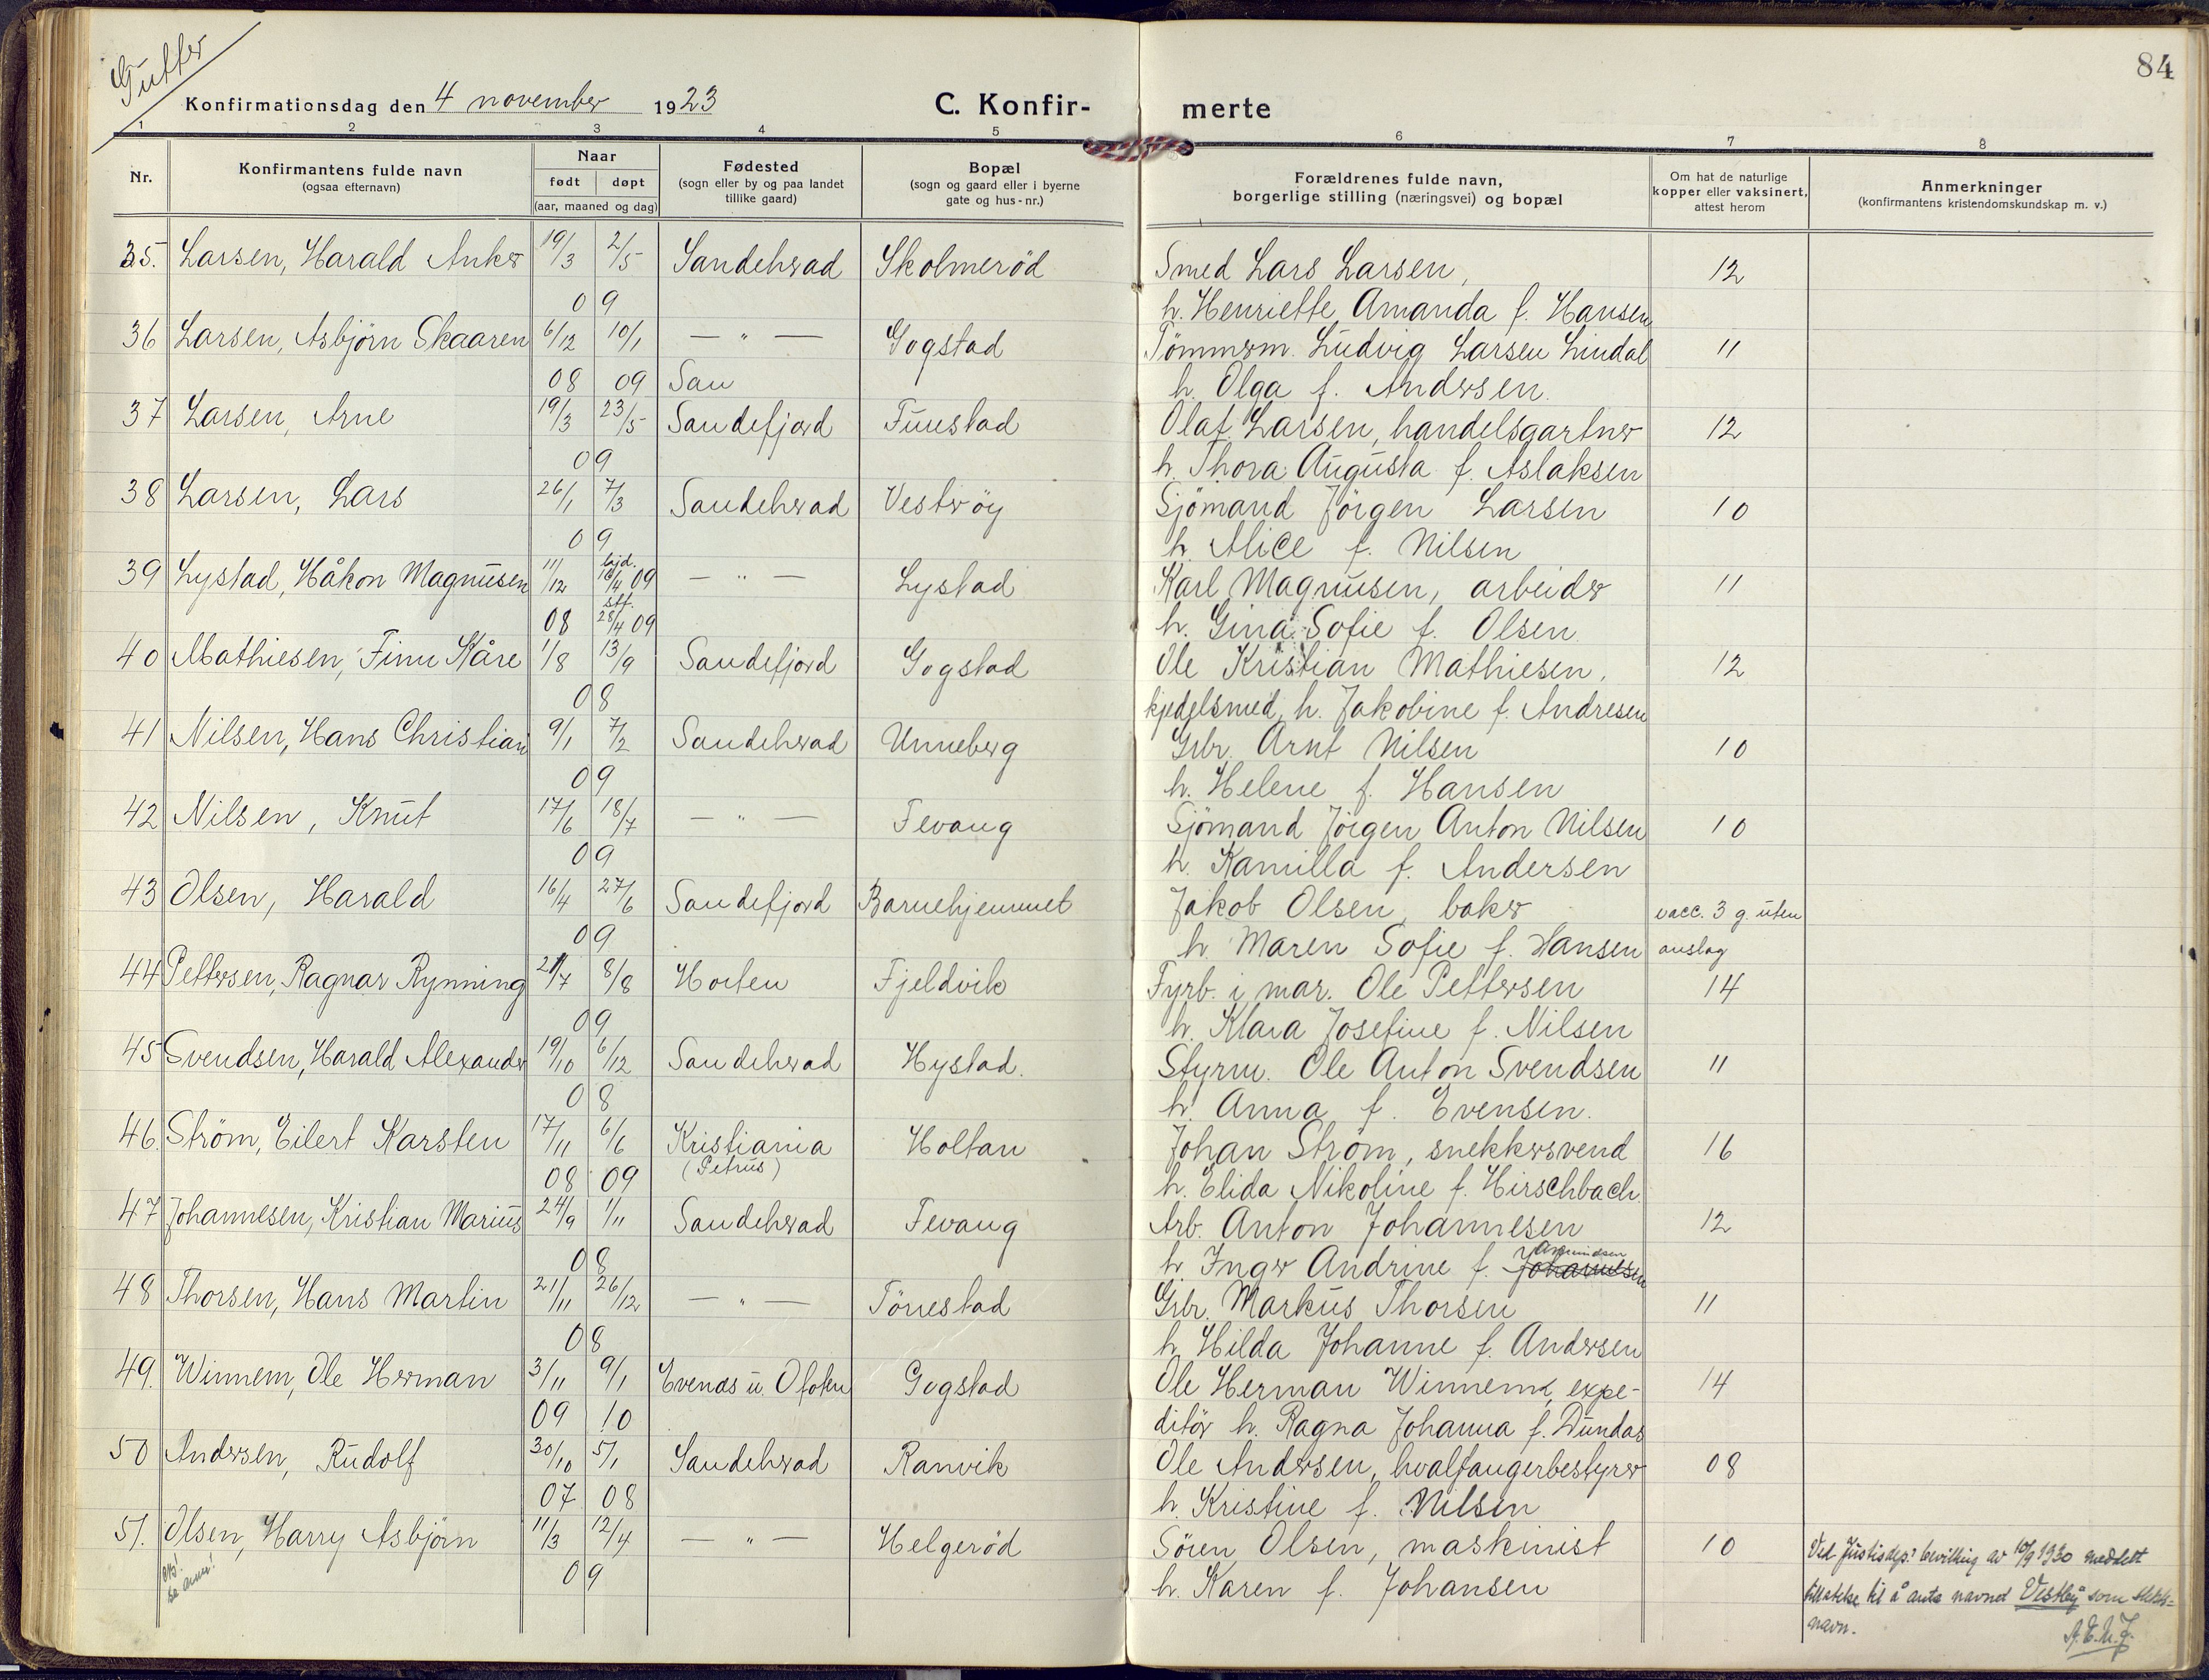 Gutter
84
Konfirmationsdag den 4 november 1923 C. Konfir- merte
1 2 3 4 5 6 7 8
Nr.
Konfirmantens fulde navn
(ogsaa efternavn)
Naar
født døpt
(aar, maaned og dag)
Fødested
(sogn eller by og paa landet
tillike gaard)
Bopæl
(sogn og gaard eller i byerne
gate og hus-nr.)
Forældrenes fulde navn,
borgerlige stilling (næringsvei) og bopæl
Om hat de naturlige
kopper eller vaksinert,
attest herom
Anmerkninger
(konfirmantens kristendomskundskap m. v.)
35. Larsen, Harald Anker 19/3 2/5 Sandeherad Skolmerød Smed Lars Larsen, 12
09 h. Henriette Amanda f. Hansen
36 Larsen, Asbjørn Skaaren 6/12 10/1 — " — Gogstad Tømmerm. Ludvig Larsen Lindal 11
08 09 San h. Olga f. Andersen.
37 Larsen, Arne 19/3 23/5 Sandefjord Furustad Olaf Larsen, handelsgartner 12
09 h. Thora Augusta f. Aslaksen
38 Larsen, Lars 26/1 7/3 Sandeherad Vesterøy Sjömand Jörgen Larsen 10
09 h. Alice f. Nilsen
39 Lystad, Håkon Magnusen 11/12 hjd. 16/4 09 — " — Lystad Karl Magnusen, arbeider 11
08 stf. 28/4 09 h. Gina Sofie f. Olsen
40 Mathiesen, Finn Kåre 1/8 13/9 Sandefjord Gogstad Ole Kristian Mathiesen, 12
08 kjedelsmed, h. Jakobine f. Andresen
41 Nilsen, Hans Christian 9/1 7/2 Sandeherad Unneberg Grbr. Arnt Nilsen 10
09 h. Helene f. Hansen
42 Nilsen, Knut 17/6 18/7 — " — Fevang Sjömand Jörgen Anton Nilsen 10
09 h. Kamilla f. Andersen
43 Olsen, Harald 16/4 27/6 Sandefjord Barnehjemmet Jakob Olsen, baker vacc. 3 g. uten
09 h. Maren Sofie f. Hansen anslag
44 Pettersen, Ragnar Rynning 21/7 8/8 Horten Fjeldvik Fyrb. i mar. Ole Pettersen 14
09 h. Klara Josefine f. Nilsen
45 Svendsen, Harald Alexander 19/10 6/12 Sandeherad Hystad. Styrm. Ole Anton Svendsen 11
08 h. Anna f. Evensen.
46. Ström, Eilert Karsten 17/11 6/6 Kristiania Holtan Johan Ström, snekkersvend 16
08 09 (Petrus) h. Elida Nikoline f. Hirschbach
47 Johannesen, Kristian Marius 24/9 1/11 Sandeherad Fevang Arb. Anton Johannesen 12
08 h. Inger Andrine f. Johannesen Amundsen
48 Thorsen, Hans Martin 21/11 26/12 — " — Tönestad Grbr. Markus Thorsen 11
08 h. Hilda Johanne f. Andersen
49. Winnem, Ole Herman 3/11 9/1 Evenes u. Ofoten Gogstad Ole Herman Winnem, expe- 14
09 10 ditör h. Ragna Johanna f. Dundas
50 Andersen, Rudolf 30/10 5/1 Sandeherad Ranvik Ole Andersen, hvalfangerbestyrer 08
07 08 h. Kristine f. Nilsen
51. Olsen, Harry Asbjörn 11/3 12/4 — " — Helgeröd Sören Olsen, maskinist 10 Ved Justisdep.s bevilling av 10/9 1930 meddelt
obs! se anm! 09 h. Karen f. Johansen tillatelse til å anta navnet Vestby som slekts-
navn.